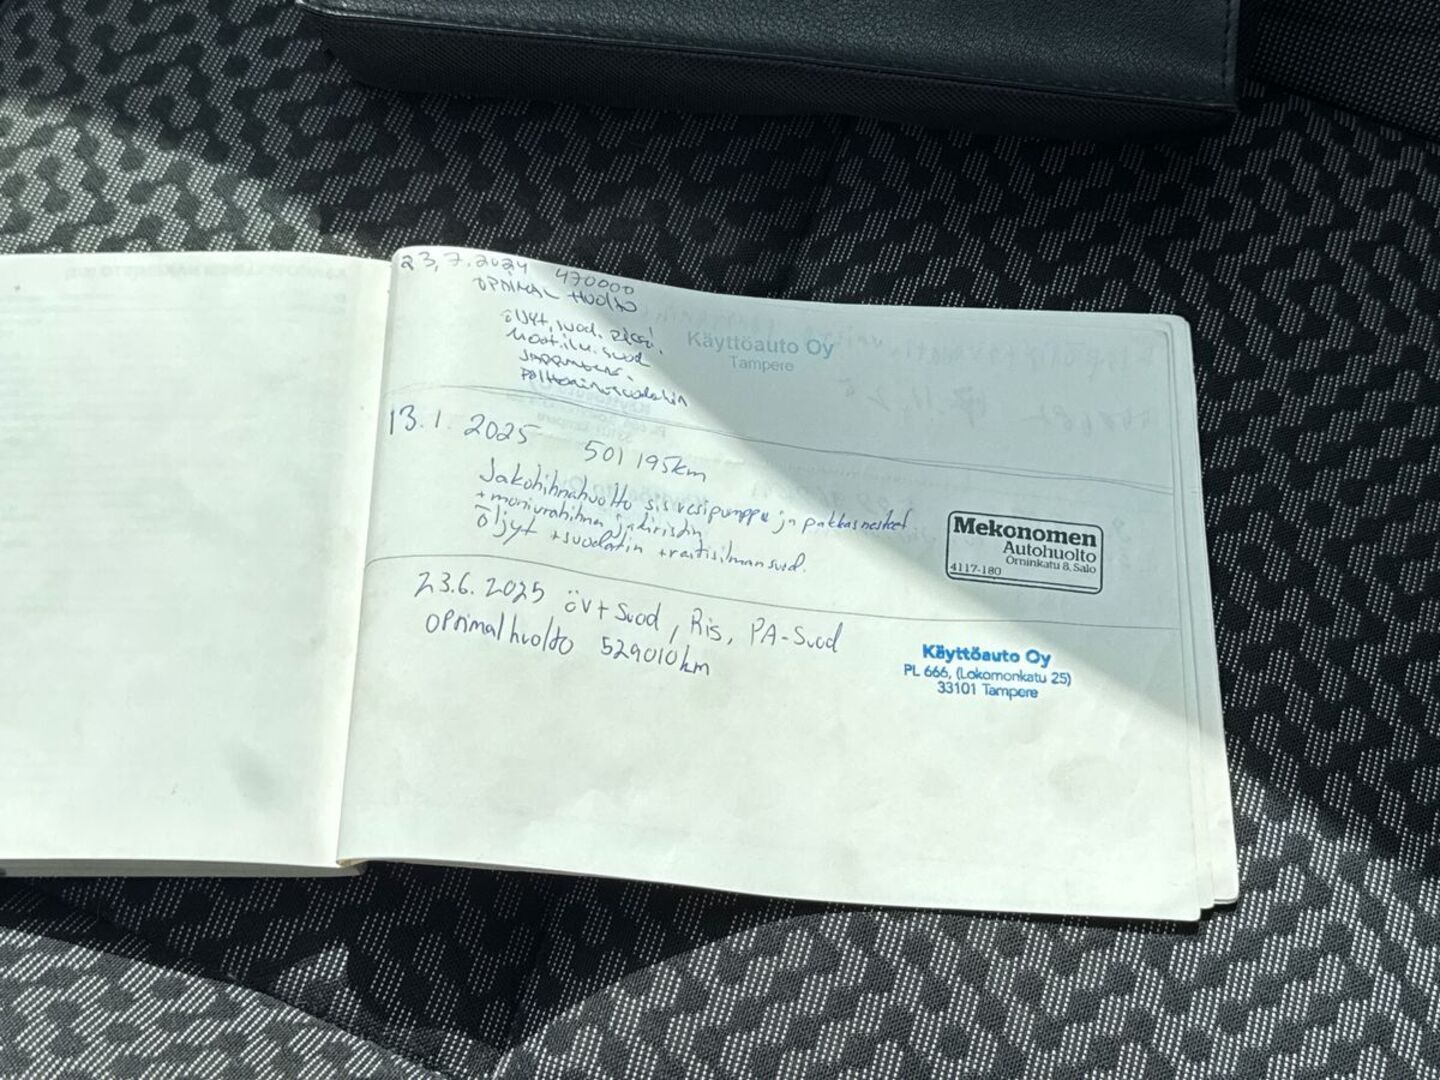 23.7.2024 470000
OPTIMAL HUOLTO
öljyt, suod.
suod
Käyttöauto Oy
Tampere
13.1.2025 501195km
Jakohihnahuolto sis vesipumppu ja pakkasnesteet
+ moniurahihna ja kiristin
öljyt + suodatin + raitisilmansuod.
Mekonomen
Autohuolto
Örninkatu 8, Salo
4117-180
23.6.2025 öv+suod, Ris, PA-Suod
optimalhuolto 529010km
Käyttöauto Oy
PL 666, (Lokomonkatu 25)
33101 Tampere